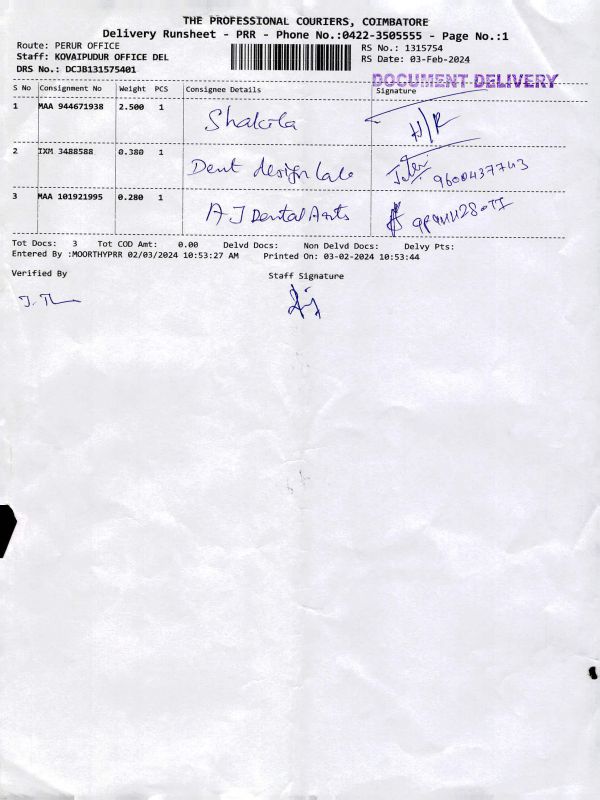 THE PROFESSIONAL COURIERS, COIMBATORE
Delivery Runsheet - PRR - Phone No.:0422-3505555 - Page No.:1
Route: PERUR OFFICE RS No.: 1315754
Staff: KOVAIPUDUR OFFICE DEL RS Date: 03-Feb-2024
DRS No.: DCJB131575401
DOCUMENT DELIVERY
S No Consignment No Weight PCS Consignee Details Signature
1 MAA 944671938 2.500 1 Shakila H/R
2 IXM 3488588 0.380 1 Dent design lab 9600437743
3 MAA 101921995 0.280 1 AJ Dental Arts
Tot Docs: 3 Tot COD Amt: 0.00 Delvd Docs: Non Delvd Docs: Delvy Pts:
Entered By :MOORTHYPRR 02/03/2024 10:53:27 AM Printed On: 03-02-2024 10:53:44
Verified By Staff Signature